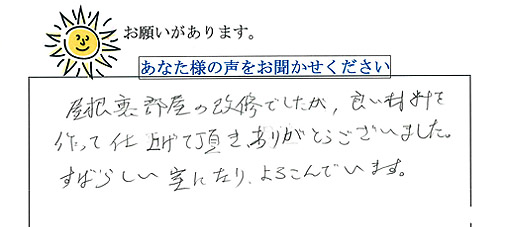 お願いがあります。
あなた様の声をお聞かせください
屋根裏部屋の改修でしたが、良い材料を
作って仕上げて頂きありがとうございました。
すばらしい室になり、よろこんでいます。